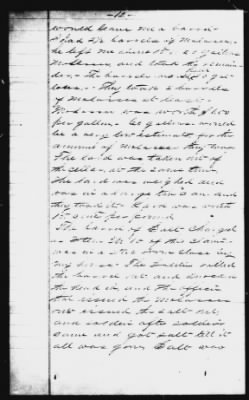 -12-
would leave me a barrel
I had 2½ barrels of Molasses.
he left me about 15 or 20 gal of
Molasses, and took the remain
der. The barrels
less. They took 2 barrels
of Molasses at least.
Molasses was worth $1.00
per gallon. 60 gallons would
be a very low estimate for the
amount of molasses they took.
The lard was taken out of
the cellar, at the same time.
The lard was weighed and
was in a large tin can and
they took it. Lard was worth
15 cents per pound.
The barrel of Salt charged
as Item No. 10 of this claim
was in a store house by
my house. The soldiers rolled
the barrel out and knocked
the head in, and the officer
that issued the Molasses
out issued the salt out,
and soldier after soldier
came and got salt till it
all was gone. Salt was